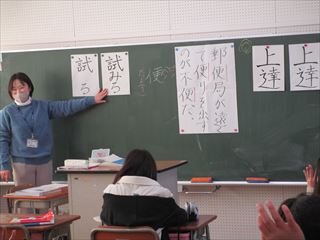 上達
上達
郵便局が遠く
て便りを出す
のが不便だ。
便
試みる
試る